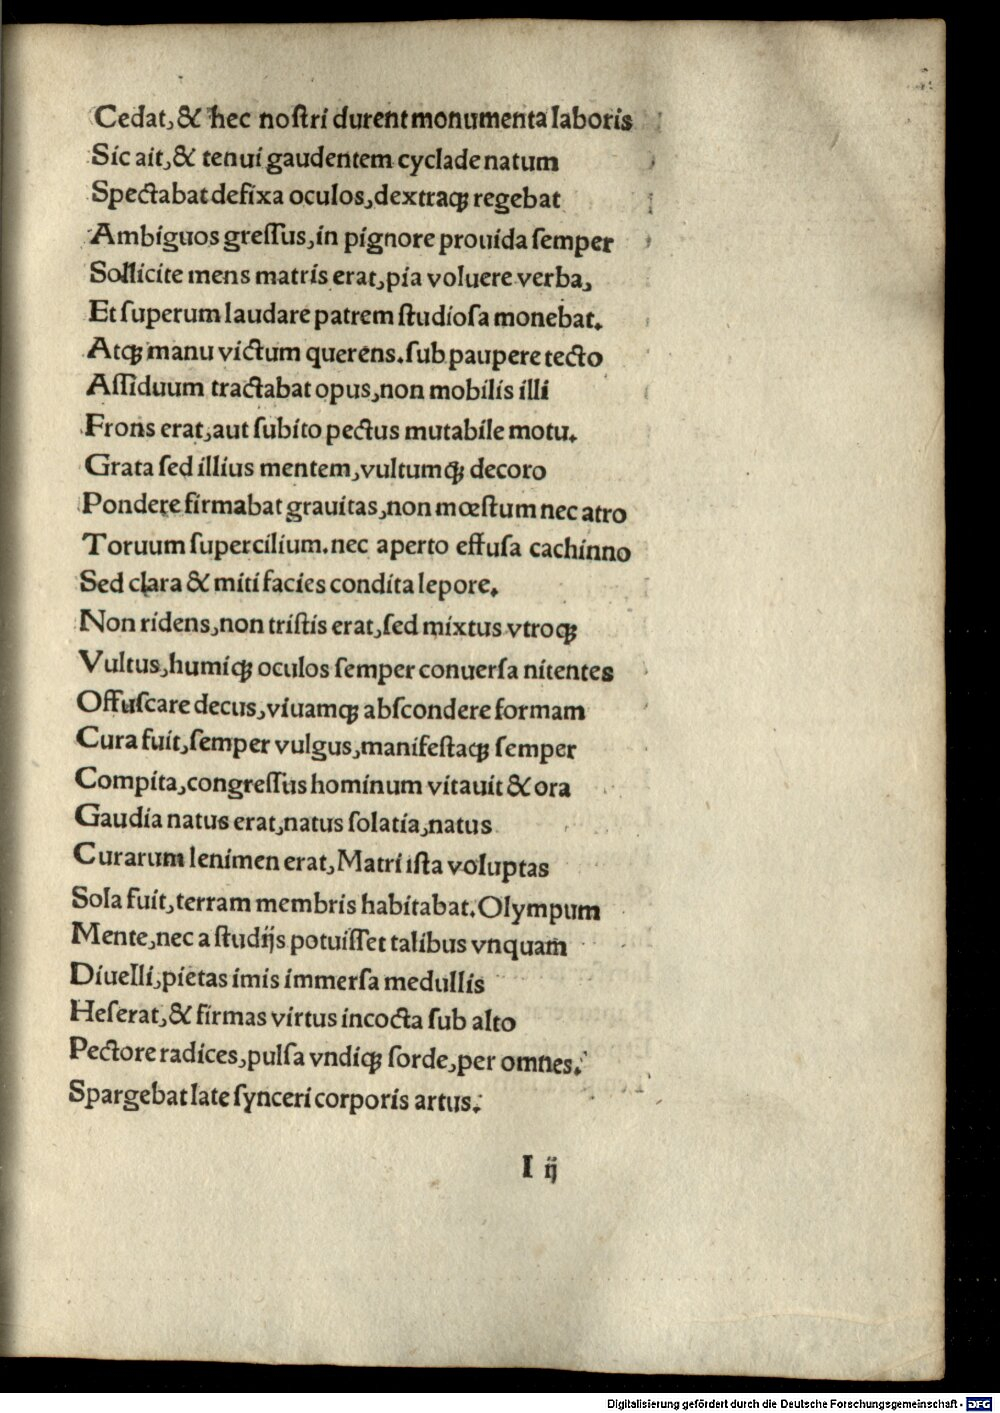 Cedat, & hec noſtri durent monumenta laboris
Sic ait, & tenui gaudentem cyclade natum
Spectabat defixa oculos, dextraqꝫ regebat
Ambiguos greſſus, in pignore prouida ſemper
Sollicite mens matris erat, pia voluere verba,
Et ſuperum laudare patrem ſtudioſa monebat.
Atqꝫ manu victum querens. ſub paupere tecto
Aſſiduum tractabat opus, non mobilis illi
Frons erat, aut ſubito pectus mutabile motu.
Grata ſed illius mentem, vultumqꝫ decoro
Pondere firmabat grauitas, non mœſtum nec atro
Toruum ſupercilium. nec aperto effuſa cachinno
Sed clara & miti facies condita lepore.
Non ridens, non triſtis erat, ſed mixtus vtroqꝫ
Vultus, humiqꝫ oculos ſemper conuerſa nitentes
Offuſcare decus, viuamqꝫ abſcondere formam
Cura fuit, ſemper vulgus, manifeſtaqꝫ ſemper
Compita, congreſſus hominum vitauit & ora
Gaudia natus erat, natus ſolatia, natus
Curarum lenimen erat, Matri iſta voluptas
Sola fuit, terram membris habitabat. Olympum
Mente, nec a ſtudijs potuiſſet talibus vnquam
Diuelli, pietas imis immerſa medullis
Heſerat, & firmas virtus incocta ſub alto
Pectore radices, pulſa vndiqꝫ ſorde, per omnes.
Spargebat late ſynceri corporis artus.
I ij
Digitalisierung gefördert durch die Deutsche Forschungsgemeinschaft - DFG